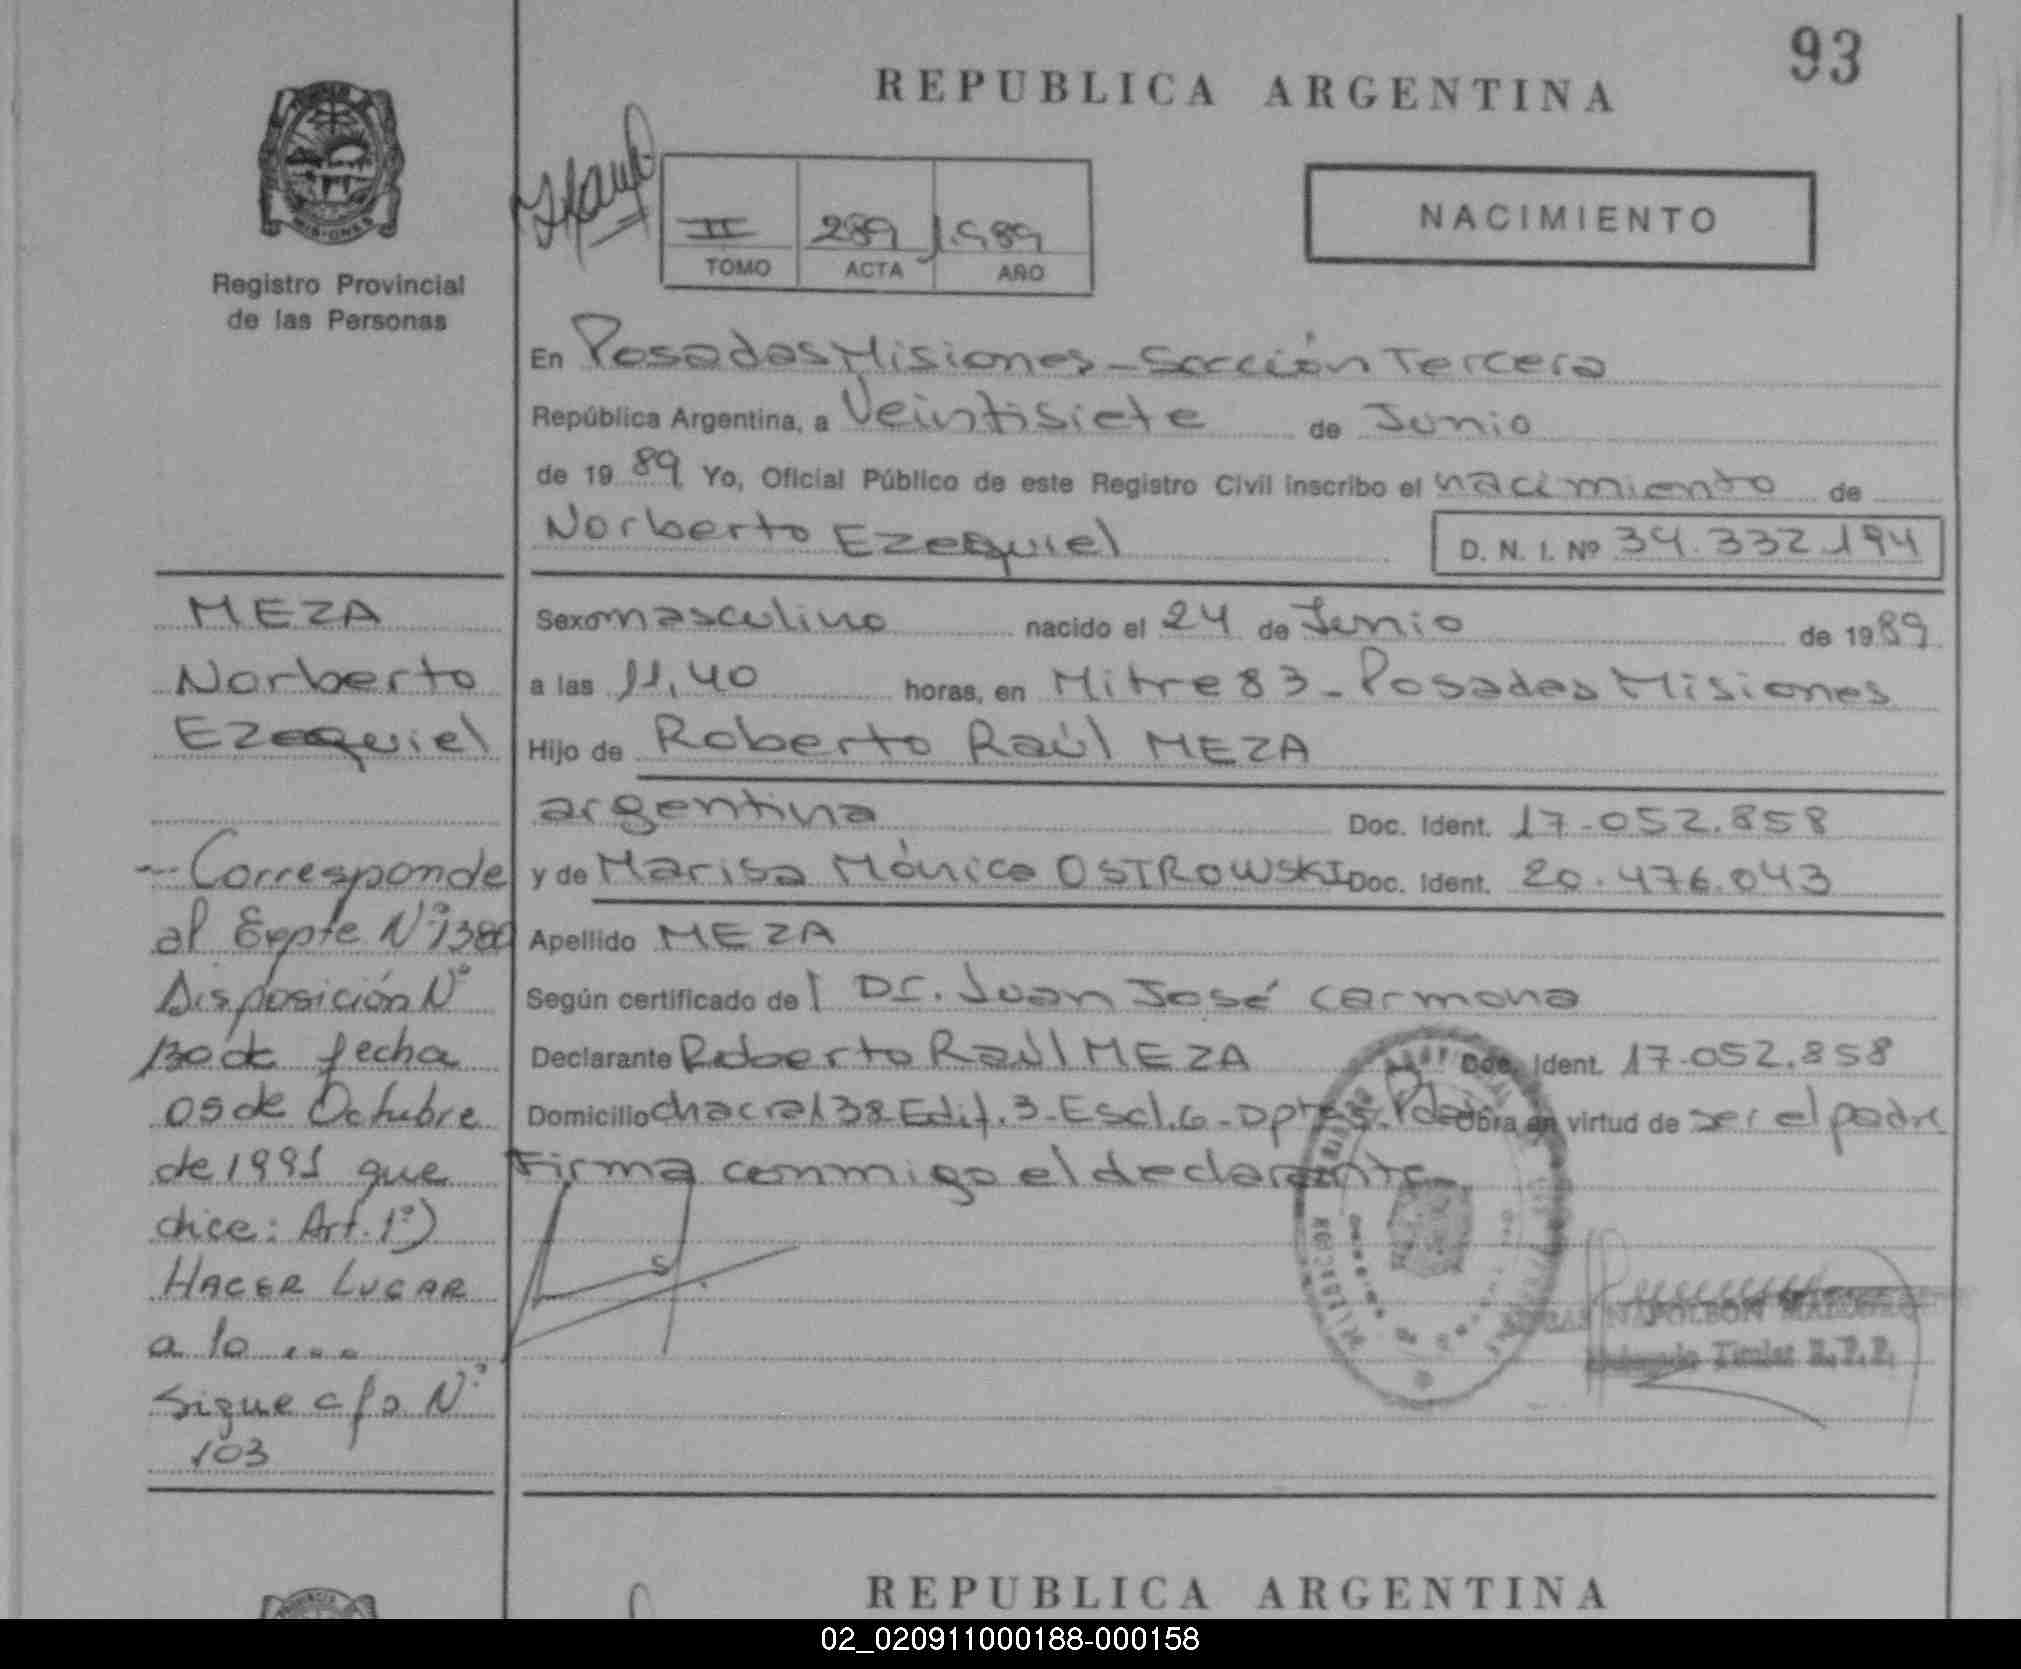 93
REPUBLICA ARGENTINA
MISIONES
Registro Provincial
de las Personas
II 289 1.989
TOMO ACTA AÑO
NACIMIENTO
En Posadas Misiones - Sección Tercera
República Argentina, a Veintisiete de Junio
de 19 89 Yo, Oficial Público de este Registro Civil inscribo el nacimiento de
Norberto Ezequiel D. N. I. Nº 34.332.194
Sexo masculino nacido el 24 de Junio de 19 89
a las 11,40 horas, en Mitre 83 - Posadas Misiones
Hijo de Roberto Raúl MEZA
argentina Doc. Ident. 17.052.858
y de Marisa Mónica OSTROWSKI Doc. Ident. 20.476.043
Apellido MEZA
Según certificado del Dr. Juan José Carmona
Declarante Roberto Raúl MEZA Doc. Ident. 17.052.858
Domicilio chacra 138 Edif. 3 - Escl. 6 - Dpto Obra en virtud de ser el padre
Firma conmigo el declarante
NAPOLEON
Titular R.P.P.
MEZA
Norberto
Ezequiel
- Corresponde
al Expte Nº 1380
Disposición Nº
130 de fecha
05 de Octubre
de 1991 que
dice: Art. 1º)
HACER LUGAR
a lo ...
Sigue c/a Nº
103
REPUBLICA ARGENTINA
02_020911000188-000158